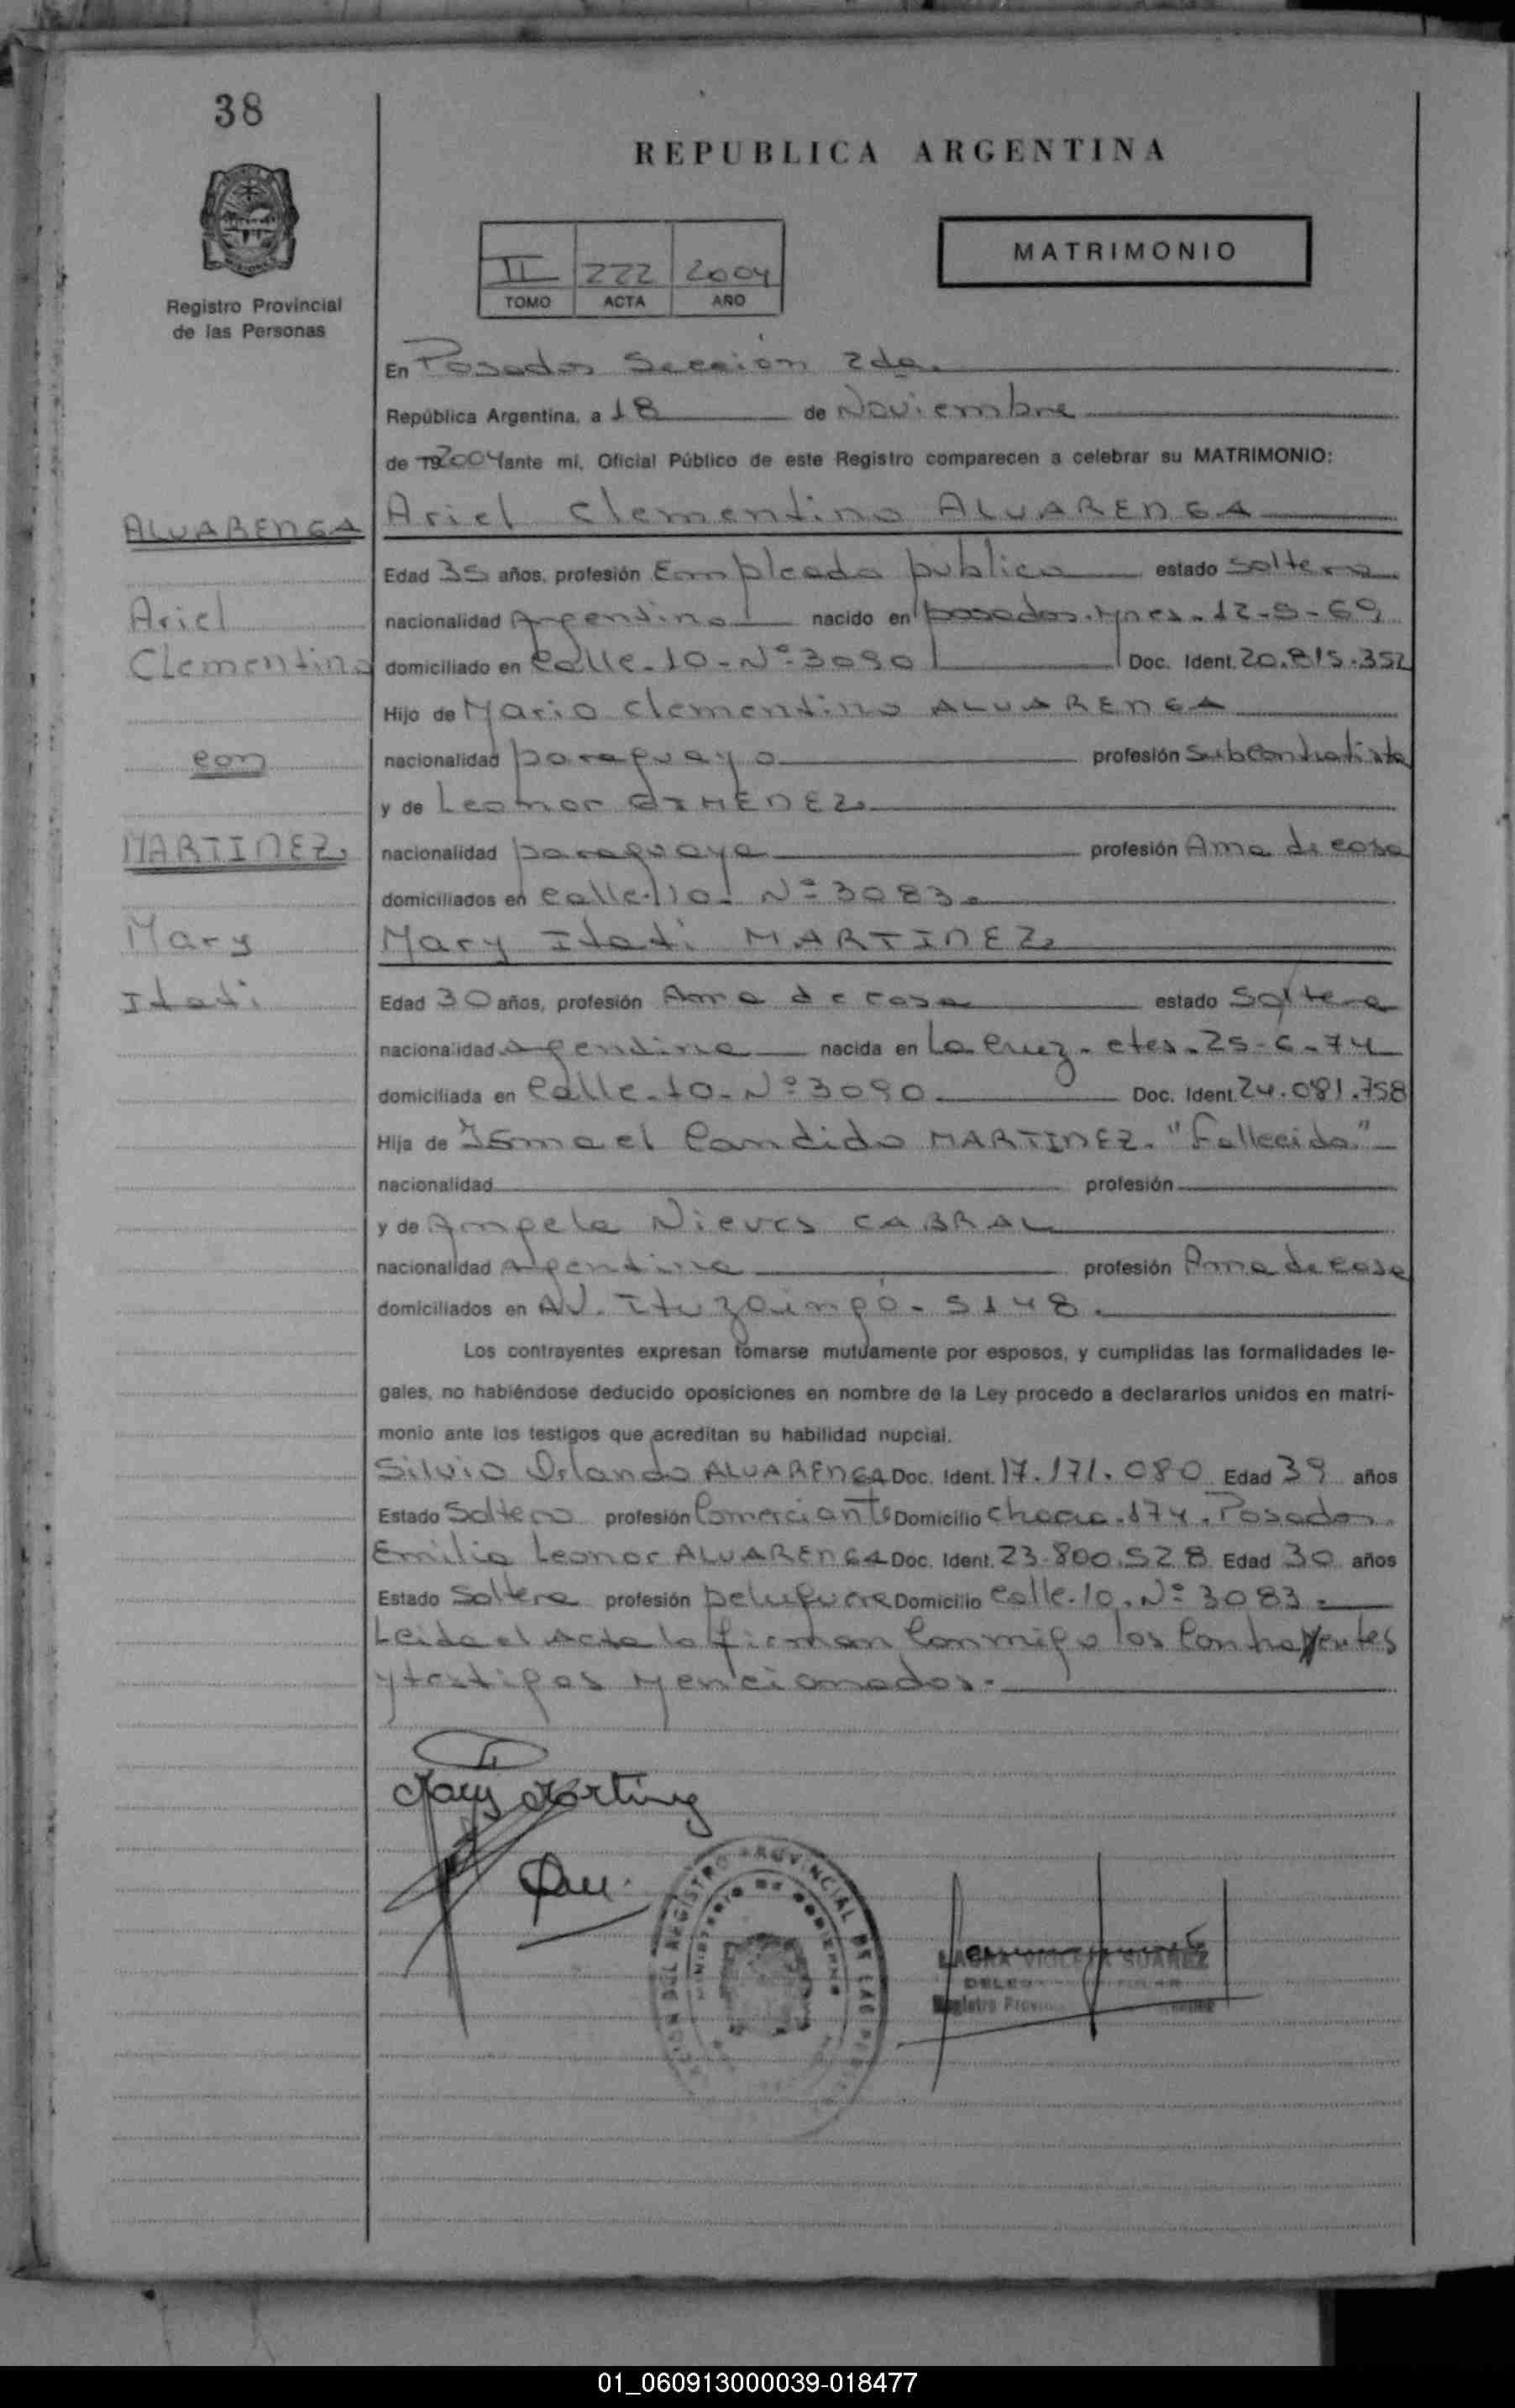 38
REPUBLICA ARGENTINA
Registro Provincial
de las Personas
II 222 2004
TOMO ACTA AÑO
MATRIMONIO
En Posadas Sección 2da.
República Argentina, a 18 de Noviembre
de 192004 ante mí, Oficial Público de este Registro comparecen a celebrar su MATRIMONIO:
ALVARENGA
Ariel
Clementino
con
MARTINEZ
Mary
Itati
Ariel Clementino ALVARENGA
Edad 35 años, profesión Empleado público estado soltero
nacionalidad Argentino nacido en posadas. Mnes. 12-5-69
domiciliado en Calle-10-Nº 3090 Doc. Ident. 20.815.352
Hijo de Mario Clementino ALVARENGA
nacionalidad paraguayo profesión Subcontratista
y de Leonor GIMENEZ.
nacionalidad paraguaya profesión Ama de casa
domiciliados en calle-10. Nº 3083.
Mary Itati MARTINEZ
Edad 30 años, profesión Ama de casa estado Soltera
nacionalidad Argentina nacida en La Cruz - ctes. 25-6-74
domiciliada en Calle-10-Nº 3090 Doc. Ident. 24.081.758
Hija de Ismael Candido MARTINEZ. "Fallecido"
nacionalidad profesión
y de Angela Nieves CABRAL
nacionalidad Argentina profesión Ama de casa
domiciliados en AV. Ituzaingó - 5148.
Los contrayentes expresan tomarse mutuamente por esposos, y cumplidas las formalidades le-
gales, no habiéndose deducido oposiciones en nombre de la Ley procedo a declararlos unidos en matri-
monio ante los testigos que acreditan su habilidad nupcial.
Silvio Orlando ALVARENGA Doc. Ident. 17.171.080 Edad 39 años
Estado Soltero profesión Comerciante Domicilio chacra.174. Posadas.
Emilia Leonor ALVARENGA Doc. Ident. 23.800.528 Edad 30 años
Estado Soltera profesión peluquera Domicilio Calle.10. Nº 3083.
Leida el Acta la firman Conmigo los Contrayentes
y testigos mencionados.
REGISTRO PROVINCIAL DE LAS
MINISTERIO DE GOBIERNO
VIOLETA SUAREZ
Registro
01_060913000039-018477